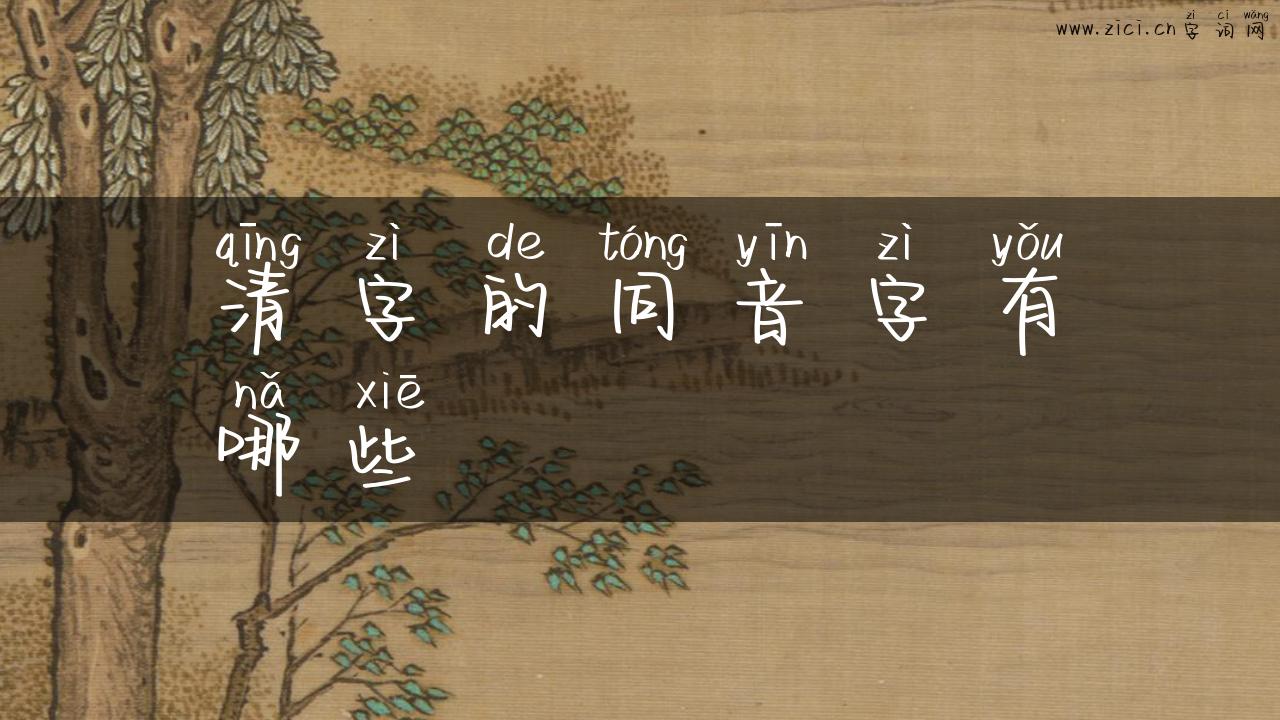 zì cí wǎng
www.zici.cn 字词网
qīng zì de tóng yīn zì yǒu
清字的同音字有
nǎ xiē
哪些